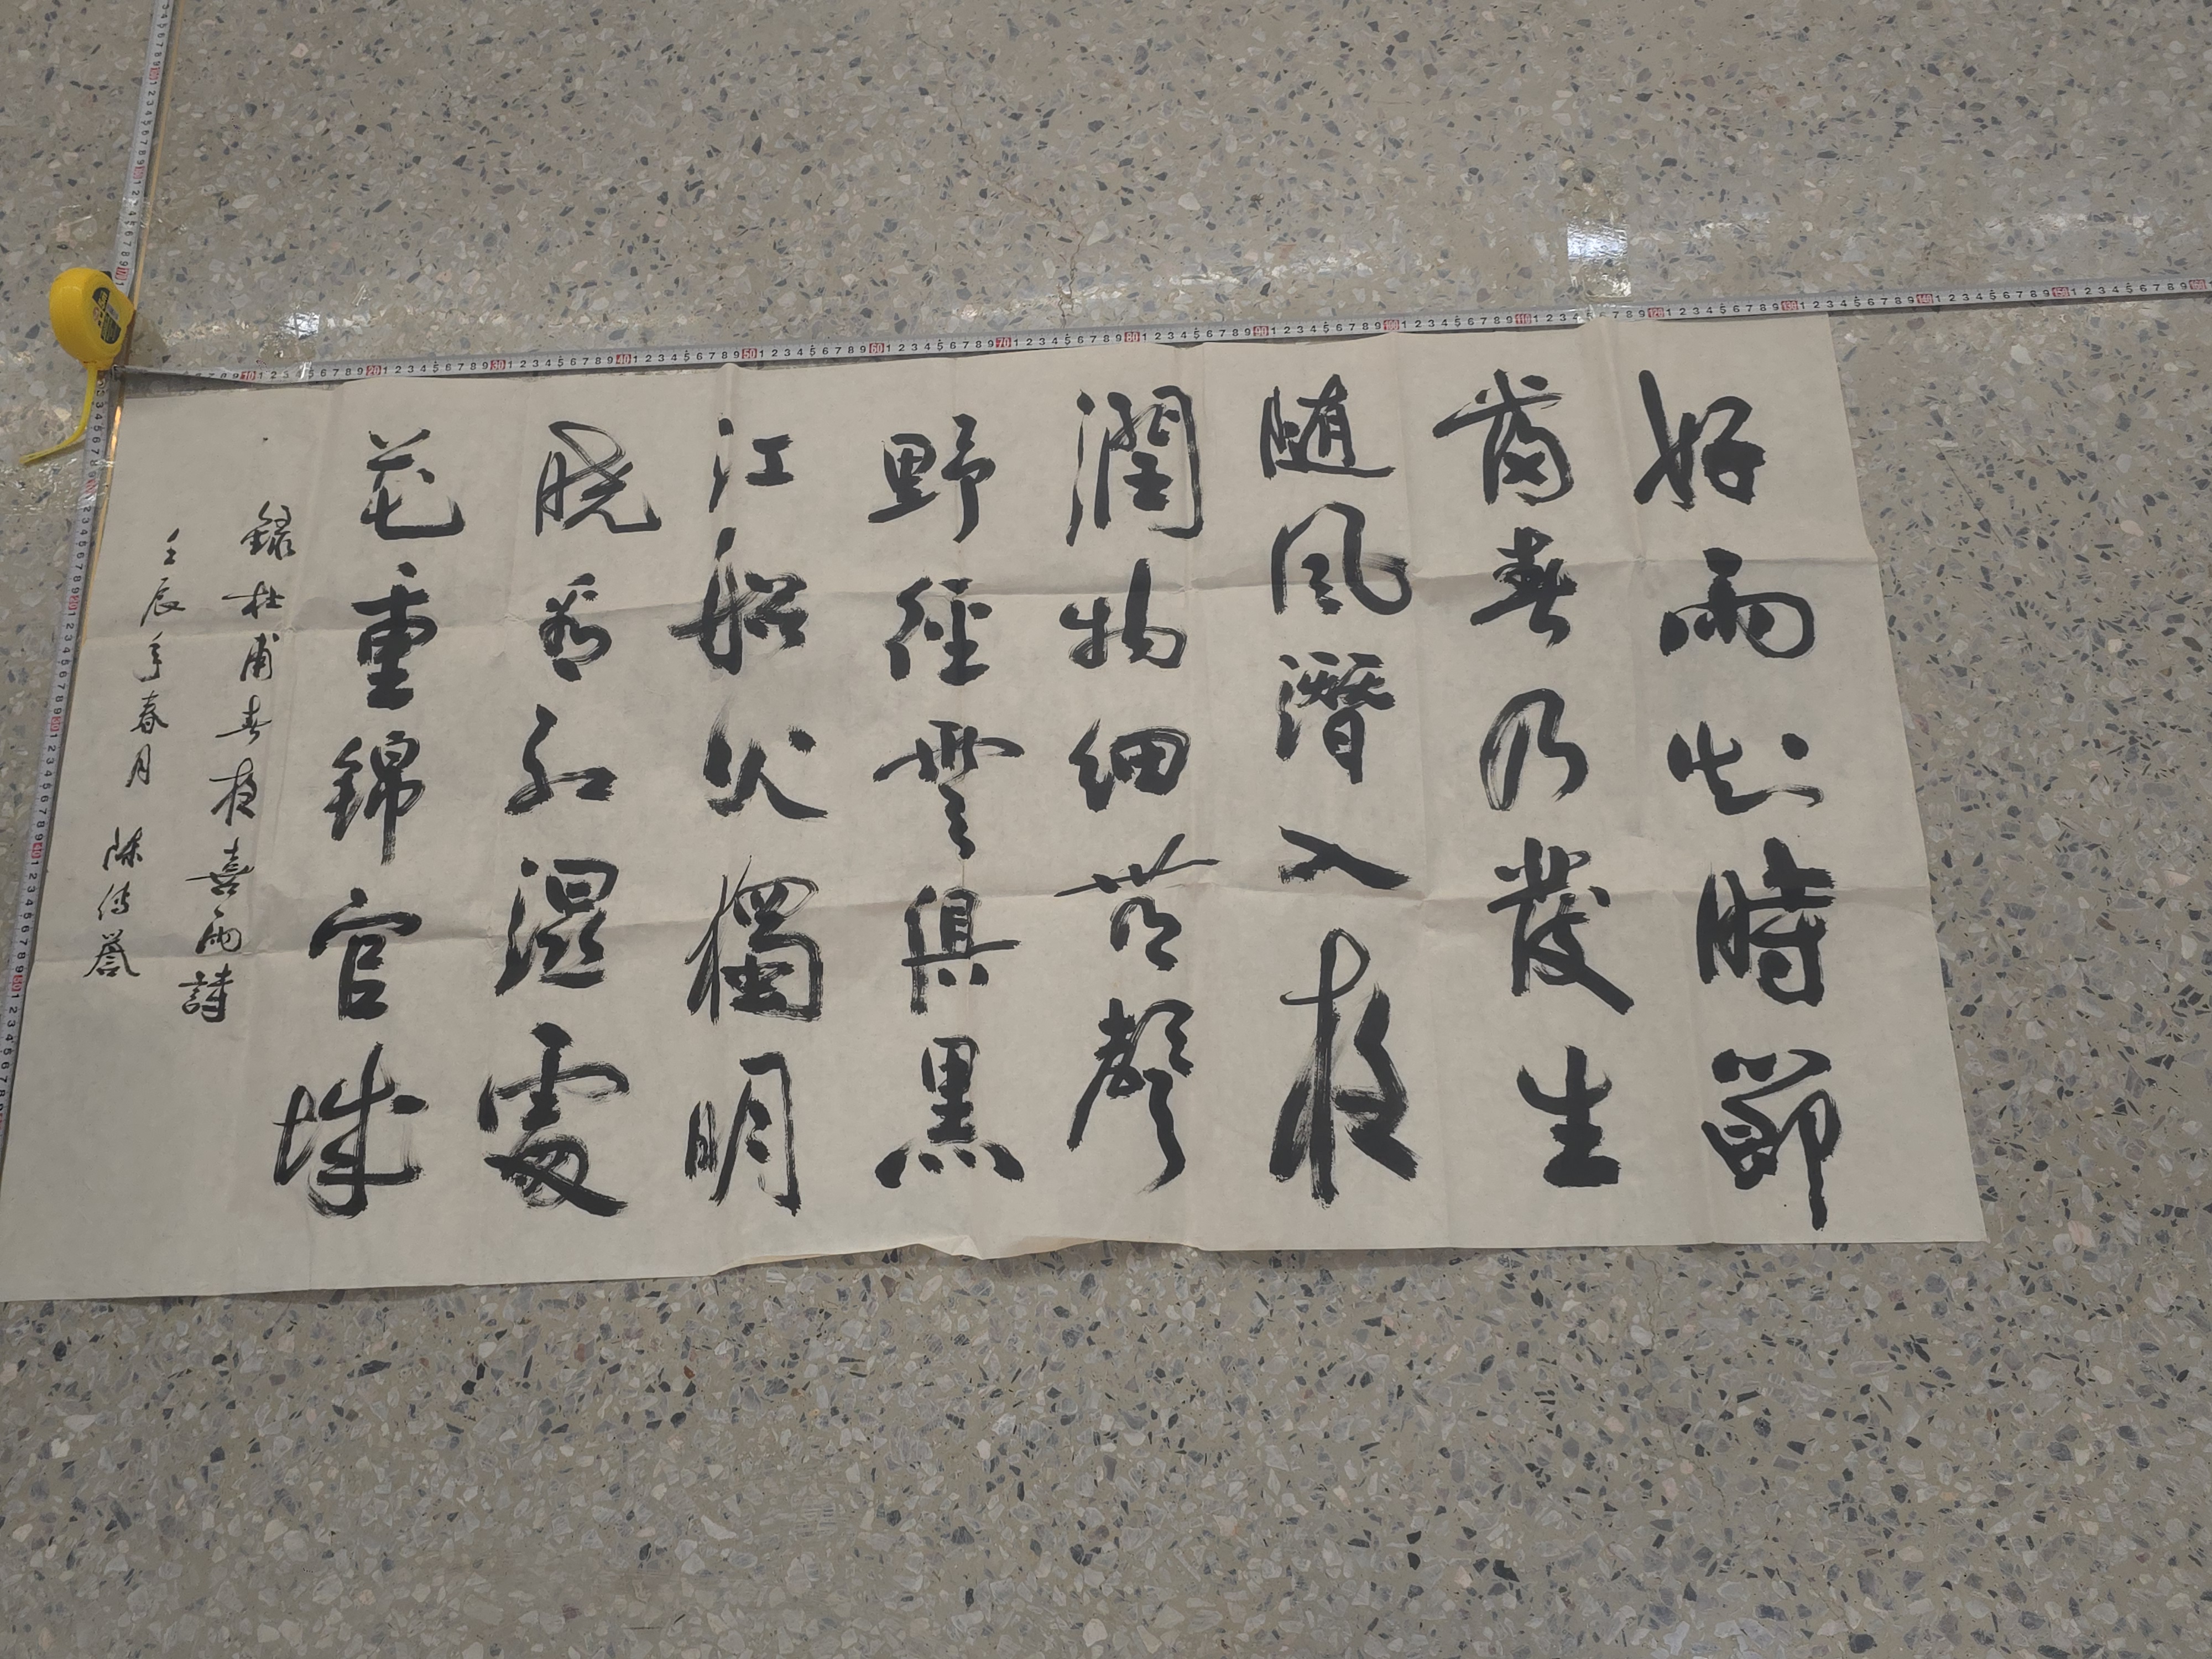 好雨知時節
當春乃發生
随風潛入夜
潤物細無聲
野徑雲俱黑
江船火獨明
曉看紅濕處
花重錦官城
録杜甫春夜喜雨詩
壬辰年春月 陳傳譽